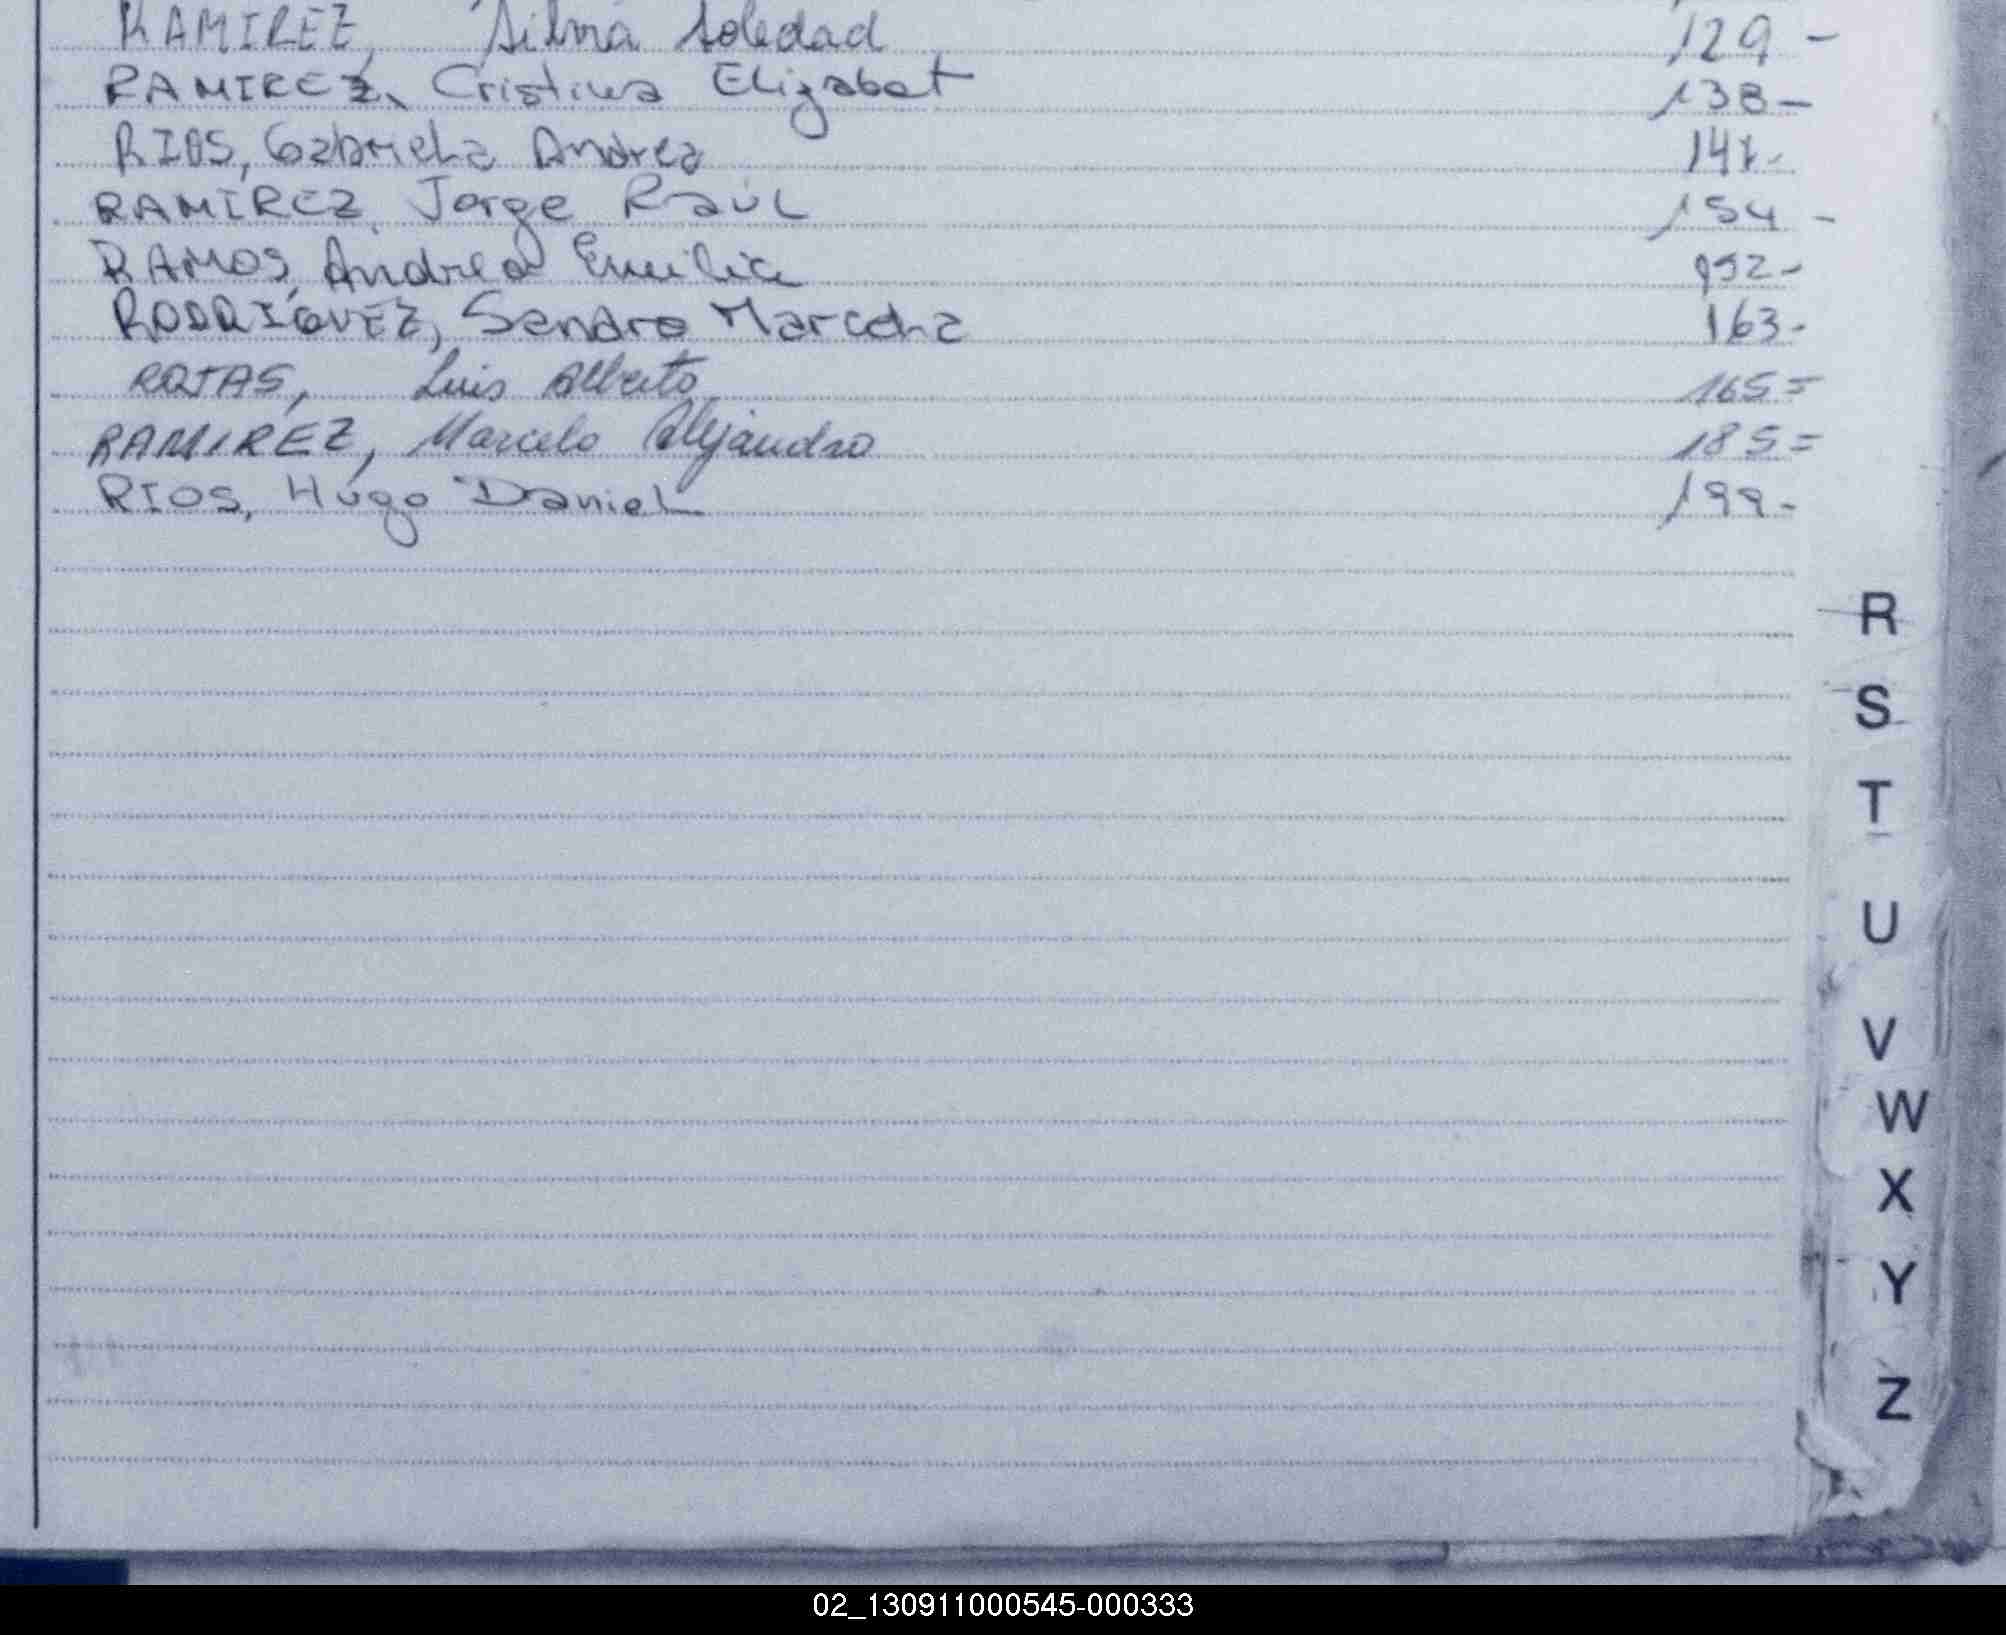 RAMIREZ, Silvia Soledad 129-
RAMIREZ, Cristina Elizabet 138-
RIOS, Gabriela Andrea 141-
RAMIREZ, Jorge Raúl 154-
RAMOS, Andrea Emilia 152-
RODRIGUEZ, Sandra Marcela 163-
ROJAS, Luis Alberto 165=
RAMIREZ, Marcelo Alejandro 185=
RIOS, Hugo Daniel 199-
R
S
T
U
V
W
X
Y
Z
02_130911000545-000333